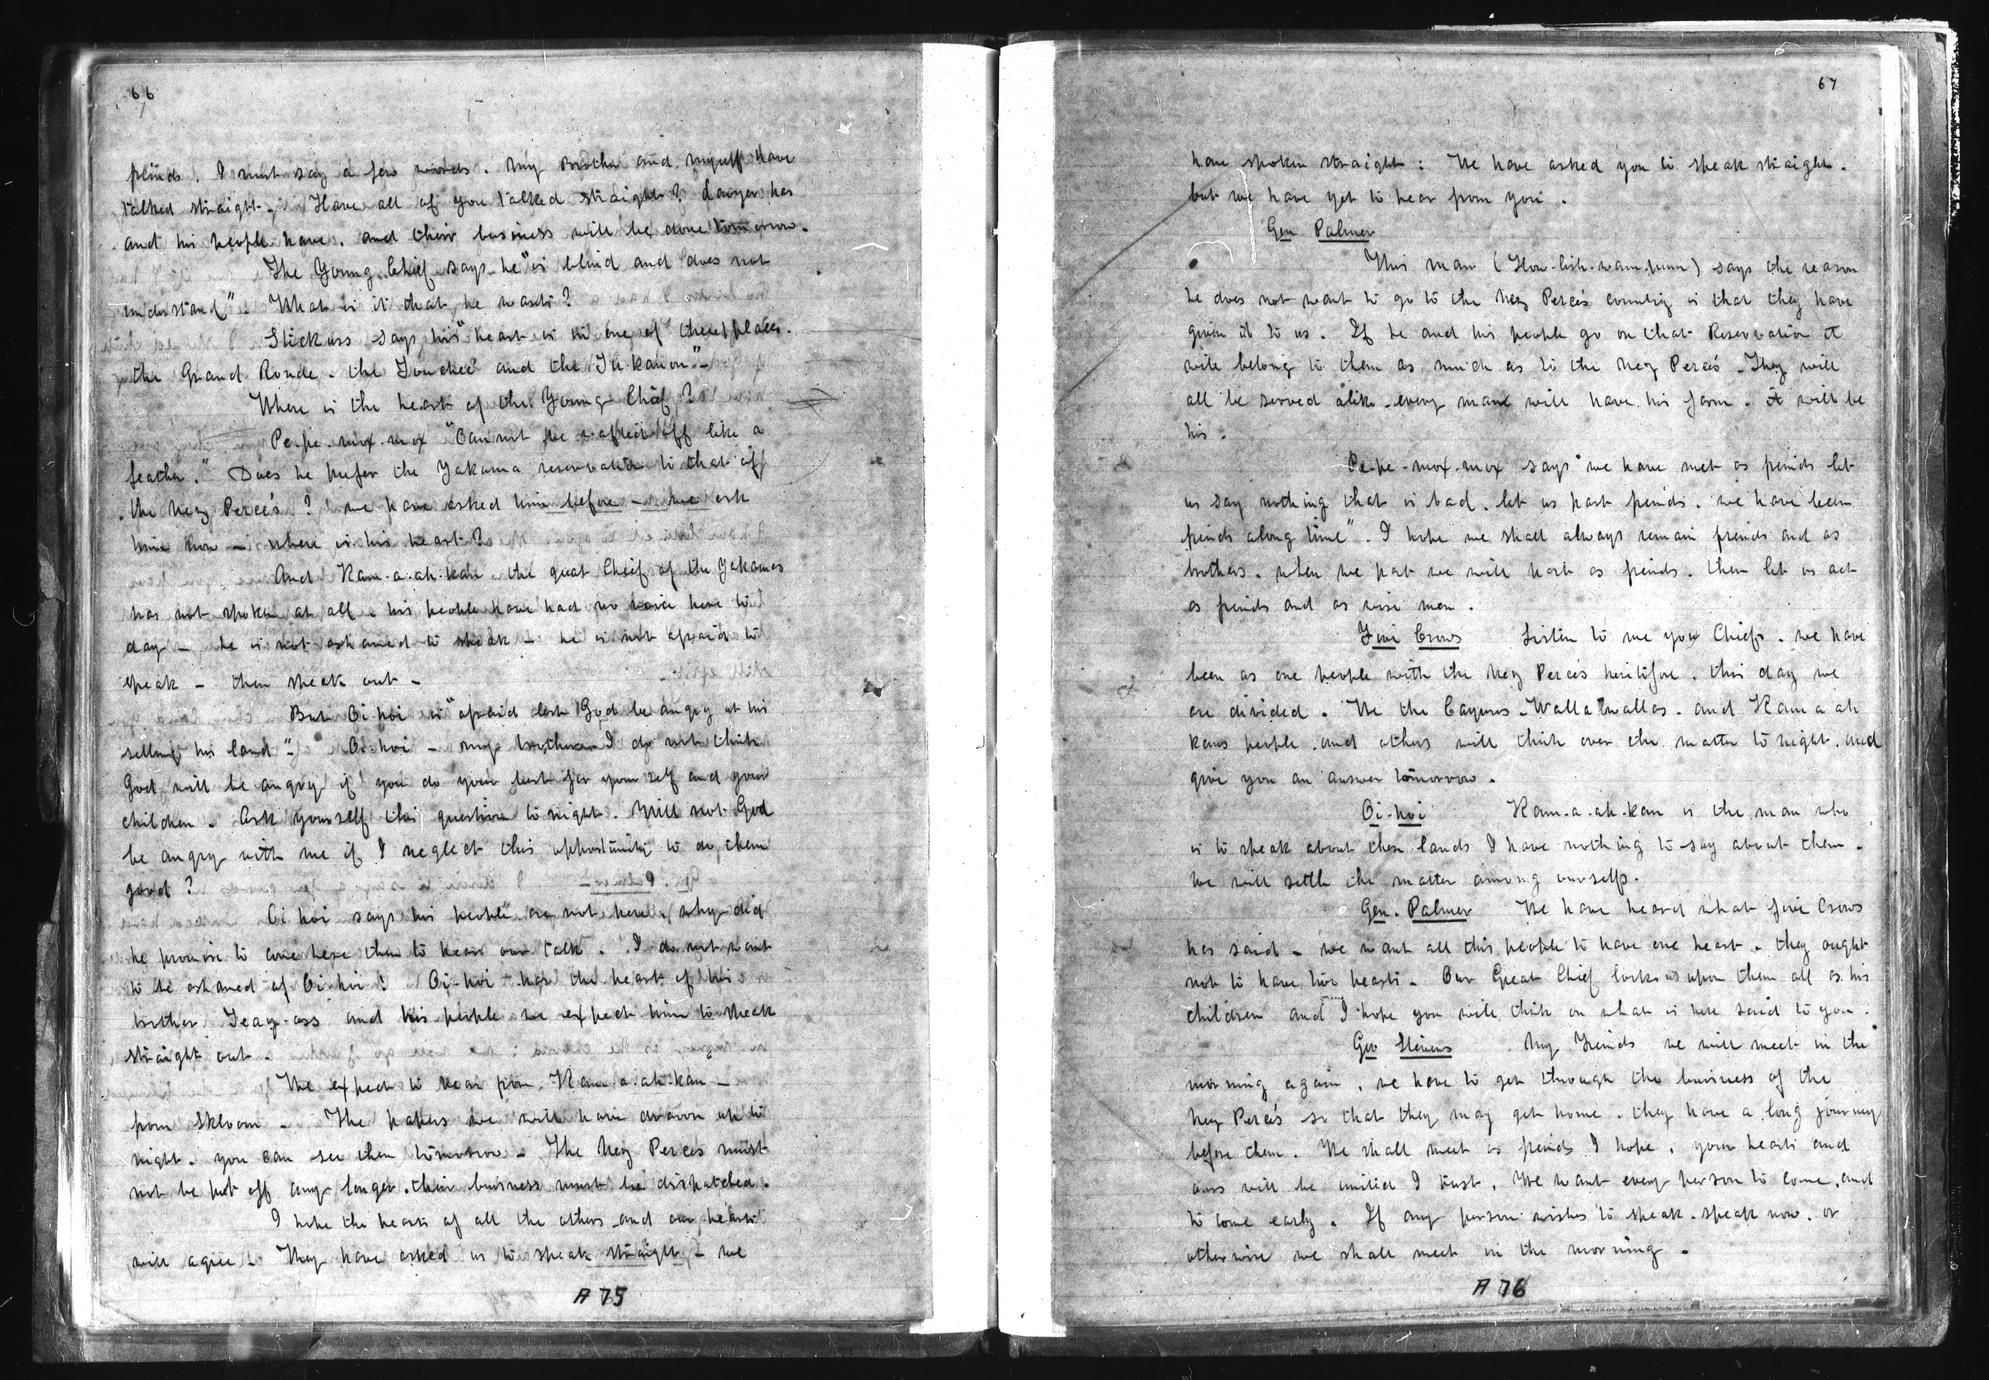 66
friends. I must say a few words. My Brother and myself have
talked straight. Have all of you talked straight? Lawyer has
and his people have. and their business will be done tomorrow.
The Young Chief says he "is blind and does not
understand". What is it that he wants?
Stickuss says his "heart is in one of these places.
the Grand Ronde. the Touchee and the Tu-kanon"-
Where is the heart of the Young Chief?
Pe-pe-mox-mox "Cannot be wafted off like a
feather." Does he prefer the Yakama reservation to that of
the Nez Perce's? we have asked him before - we ask
him now - where is his heart?
And Kam-a-ah-kan the great Chief of the Yakamas
has not spoken at all. his people have had no voice here to
day - he is not ashamed to speak - he is not afraid to
speak - then speak out -
But Oi-hoi is "afraid lest God be angry at his
selling his land"- Oi-hoi - my brother - I do not think
God will be angry if you do your best for yourself and your
children. Ask yourself this question to night. Will not God
be angry with me if I neglect this opportunity to do them
good?
Oi-hoi says his people are not here. why did
he promise to come here then to hear our talk. I do not want
to be ashamed of Oi-hoi! Oi-hoi has the heart of his
brother Teay-ass and his people we expect him to speak
straight out.
We expect to hear from Kam-a-ah-kan -
from Skloom - The papers we will have drawn up to
night. you can see them tomorrow - The Nez Perces must
not be put off any longer. their business must be dispatched.
I hope the hearts of all the others and our hearts
will agree - They have asked us to speak straight - we
A 75
67
have spoken straight: We have asked you to speak straight.
but we have yet to hear from you.
Gen Palmer
This man (How-lish-wam-pum) says the reason
he does not want to go to the Nez Perce's country is that they have
given it to us. If he and his people go on that Reservation it
will belong to them as much as to the Nez Perce's - They will
all be served alike - every man will have his farm. it will be
his.
Pe-pe-mox-mox says "we have met as friends let
us say nothing that is bad. let us part friends. we have been
friends along time". I hope we shall always remain friends and as
brothers. when we part we will part as friends. then let us act
as friends and as wise men.
Five Crows Listen to me you Chiefs. we have
been as one people with the Nez Perce's heretofore. this day we
are divided. We the Cayuses - Walla Wallas. and Kam a ah
kans people. and others will think over the matter to night. and
give you an answer tomorrow.
Oi-hoi Kam-a-ah-kan is the man who
is to speak about these lands I have nothing to say about them.
We will settle the matter among ourselfs.
Gen. Palmer We have heard what five Crows
has said - we want all this people to have one heart - they ought
not to have two hearts - Our Great Chief looks upon them all as his
children and I hope you will think on what is here said to you.
Gov Stevens My Friends we will meet in the
morning again, we have to get through the business of the
Nez Perce's so that they may get home. they have a long journey
before them. We shall meet as friends I hope. your hearts and
ours will be united I trust. We want every person to come. and
to come early. If any person wishes to speak. speak now. or
otherwise we shall meet in the morning -
A 76